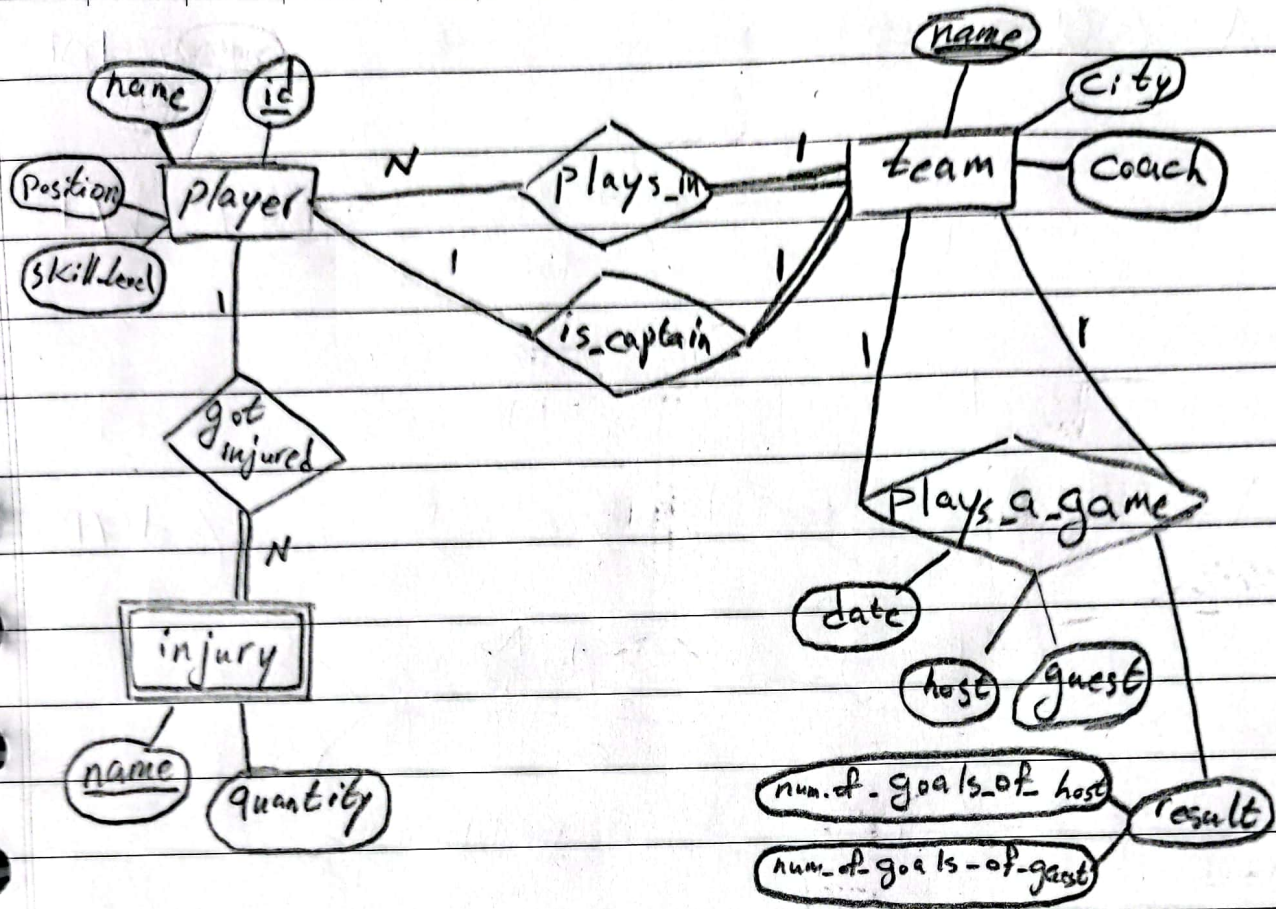 name
name
id
city
position
player
N
plays_in
1
team
coach
skill_level
1
1
1
is_captain
1
1
got
injured
plays_a_game
N
date
injury
host
guest
name
quantity
num_of_goals_of_host
result
num_of_goals_of_guest